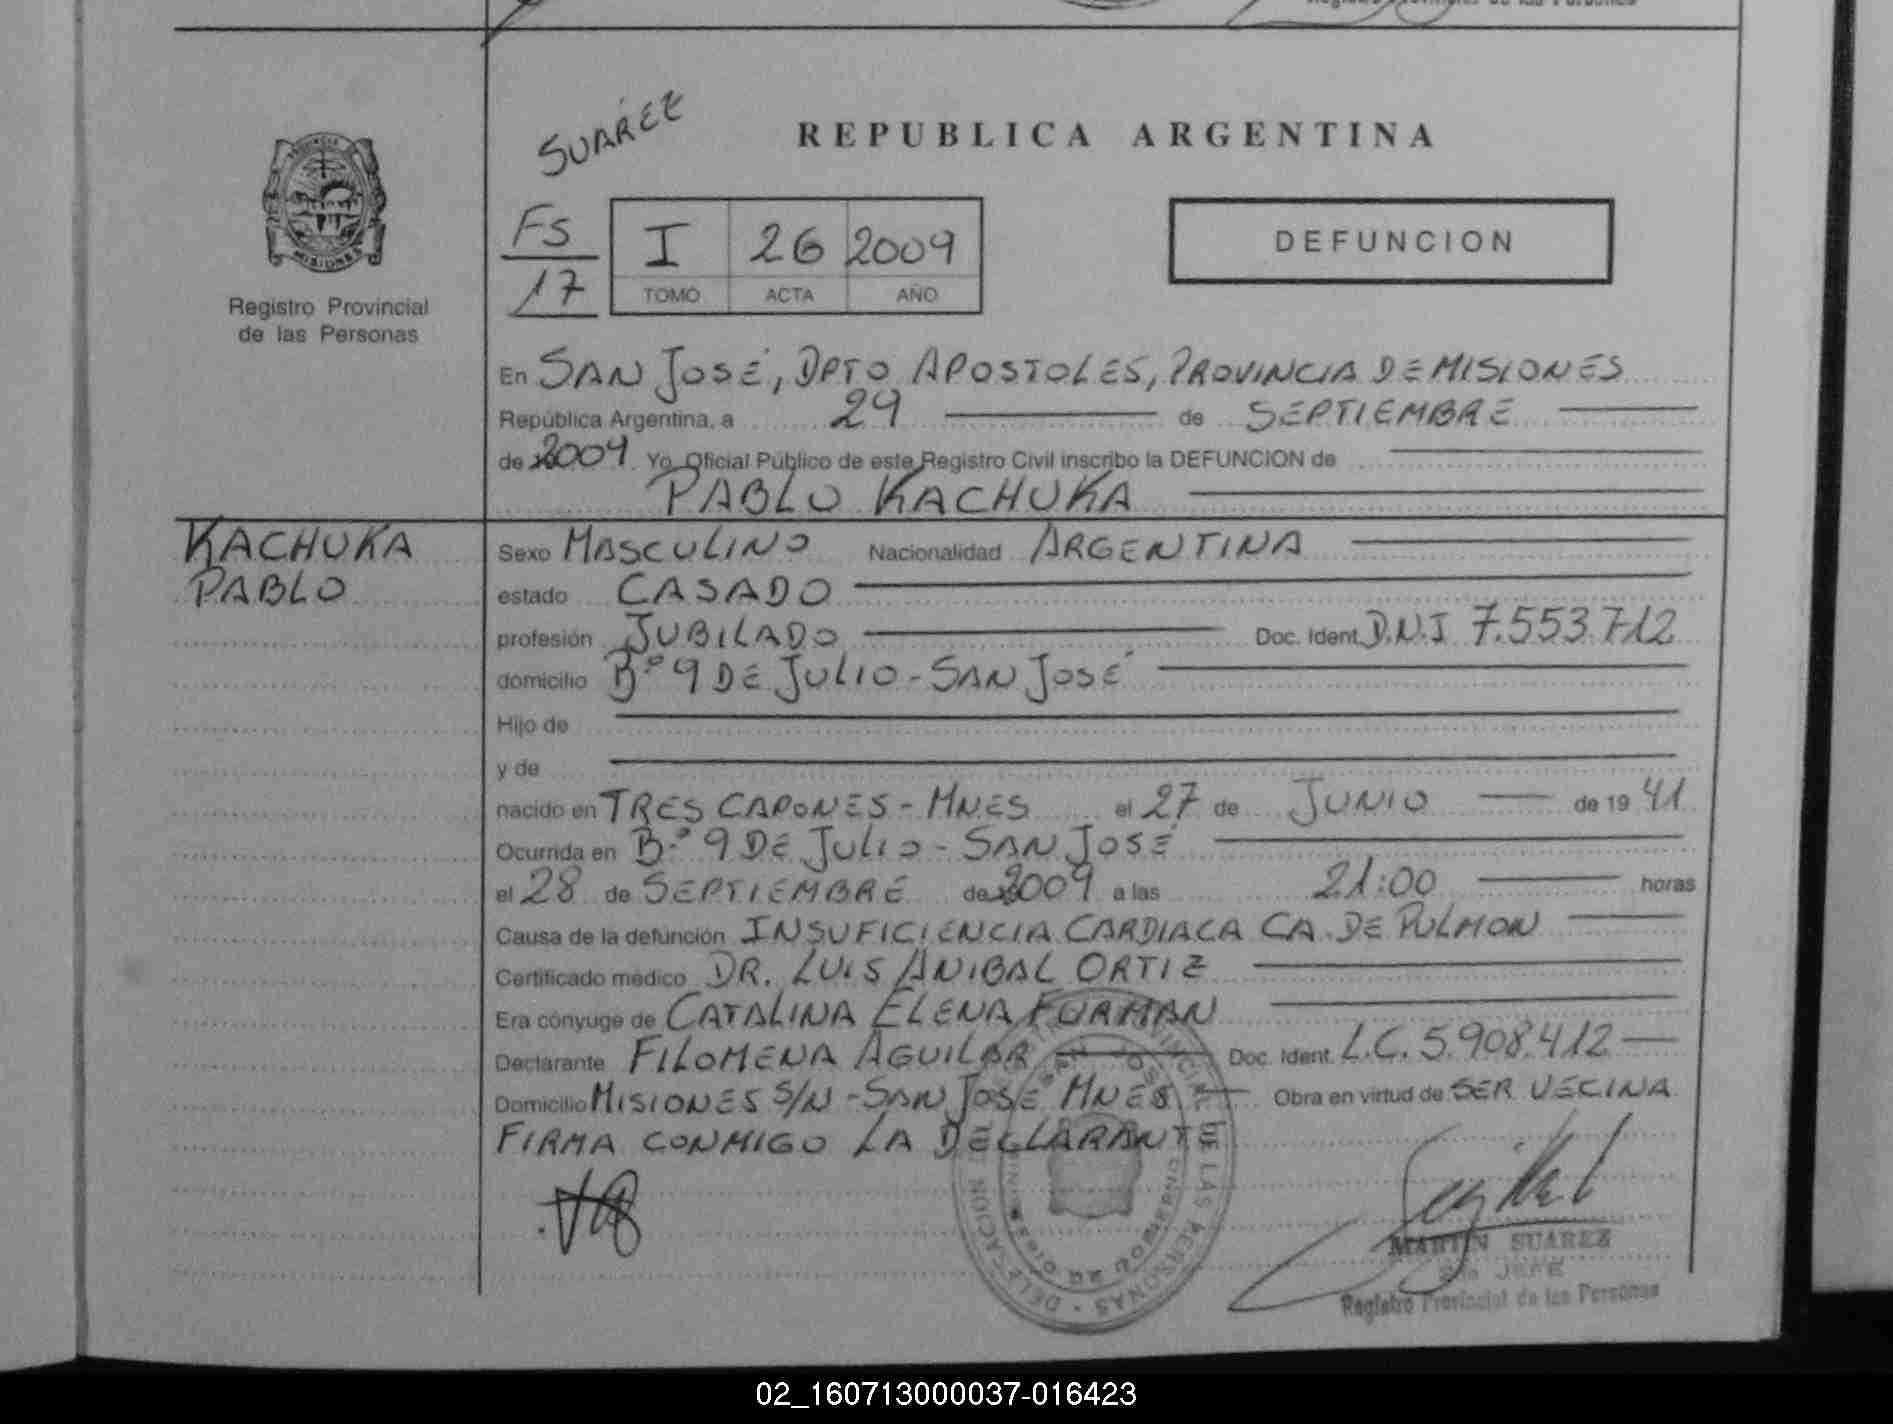 SUÁREZ
REPUBLICA ARGENTINA
FS
17
I 26 2009
TOMO ACTA AÑO
DEFUNCION
PROVINCIA
MISIONES
Registro Provincial
de las Personas
En SAN JOSÉ, DPTO APOSTOLES, PROVINCIA DE MISIONES
República Argentina, a 29 de SEPTIEMBRE
de 2009 Yo, Oficial Público de este Registro Civil inscribo la DEFUNCION de
PABLO KACHUKA
KACHUKA
PABLO
Sexo MASCULINO Nacionalidad ARGENTINA
estado CASADO
profesión JUBILADO Doc. Ident. D.N.I 7.553.712
domicilio Bº 9 DE JULIO - SAN JOSÉ
Hijo de
y de
nacido en TRES CAPONES - MNES el 27 de JUNIO de 19 41
Ocurrida en Bº 9 DE JULIO - SAN JOSÉ
el 28 de SEPTIEMBRE de 2009 a las 21:00 horas
Causa de la defunción INSUFICIENCIA CARDIACA CA. DE PULMON
Certificado médico DR. LUIS ANIBAL ORTIZ
Era cónyuge de CATALINA ELENA FURMAN
Declarante FILOMENA AGUILAR Doc. Ident. L.C. 5.908.412
Domicilio MISIONES S/N - SAN JOSÉ MNES Obra en virtud de SER VECINA
FIRMA CONMIGO LA DECLARANTE
MARTIN SUAREZ
JEFE
Registro Provincial de las Personas
02_160713000037-016423